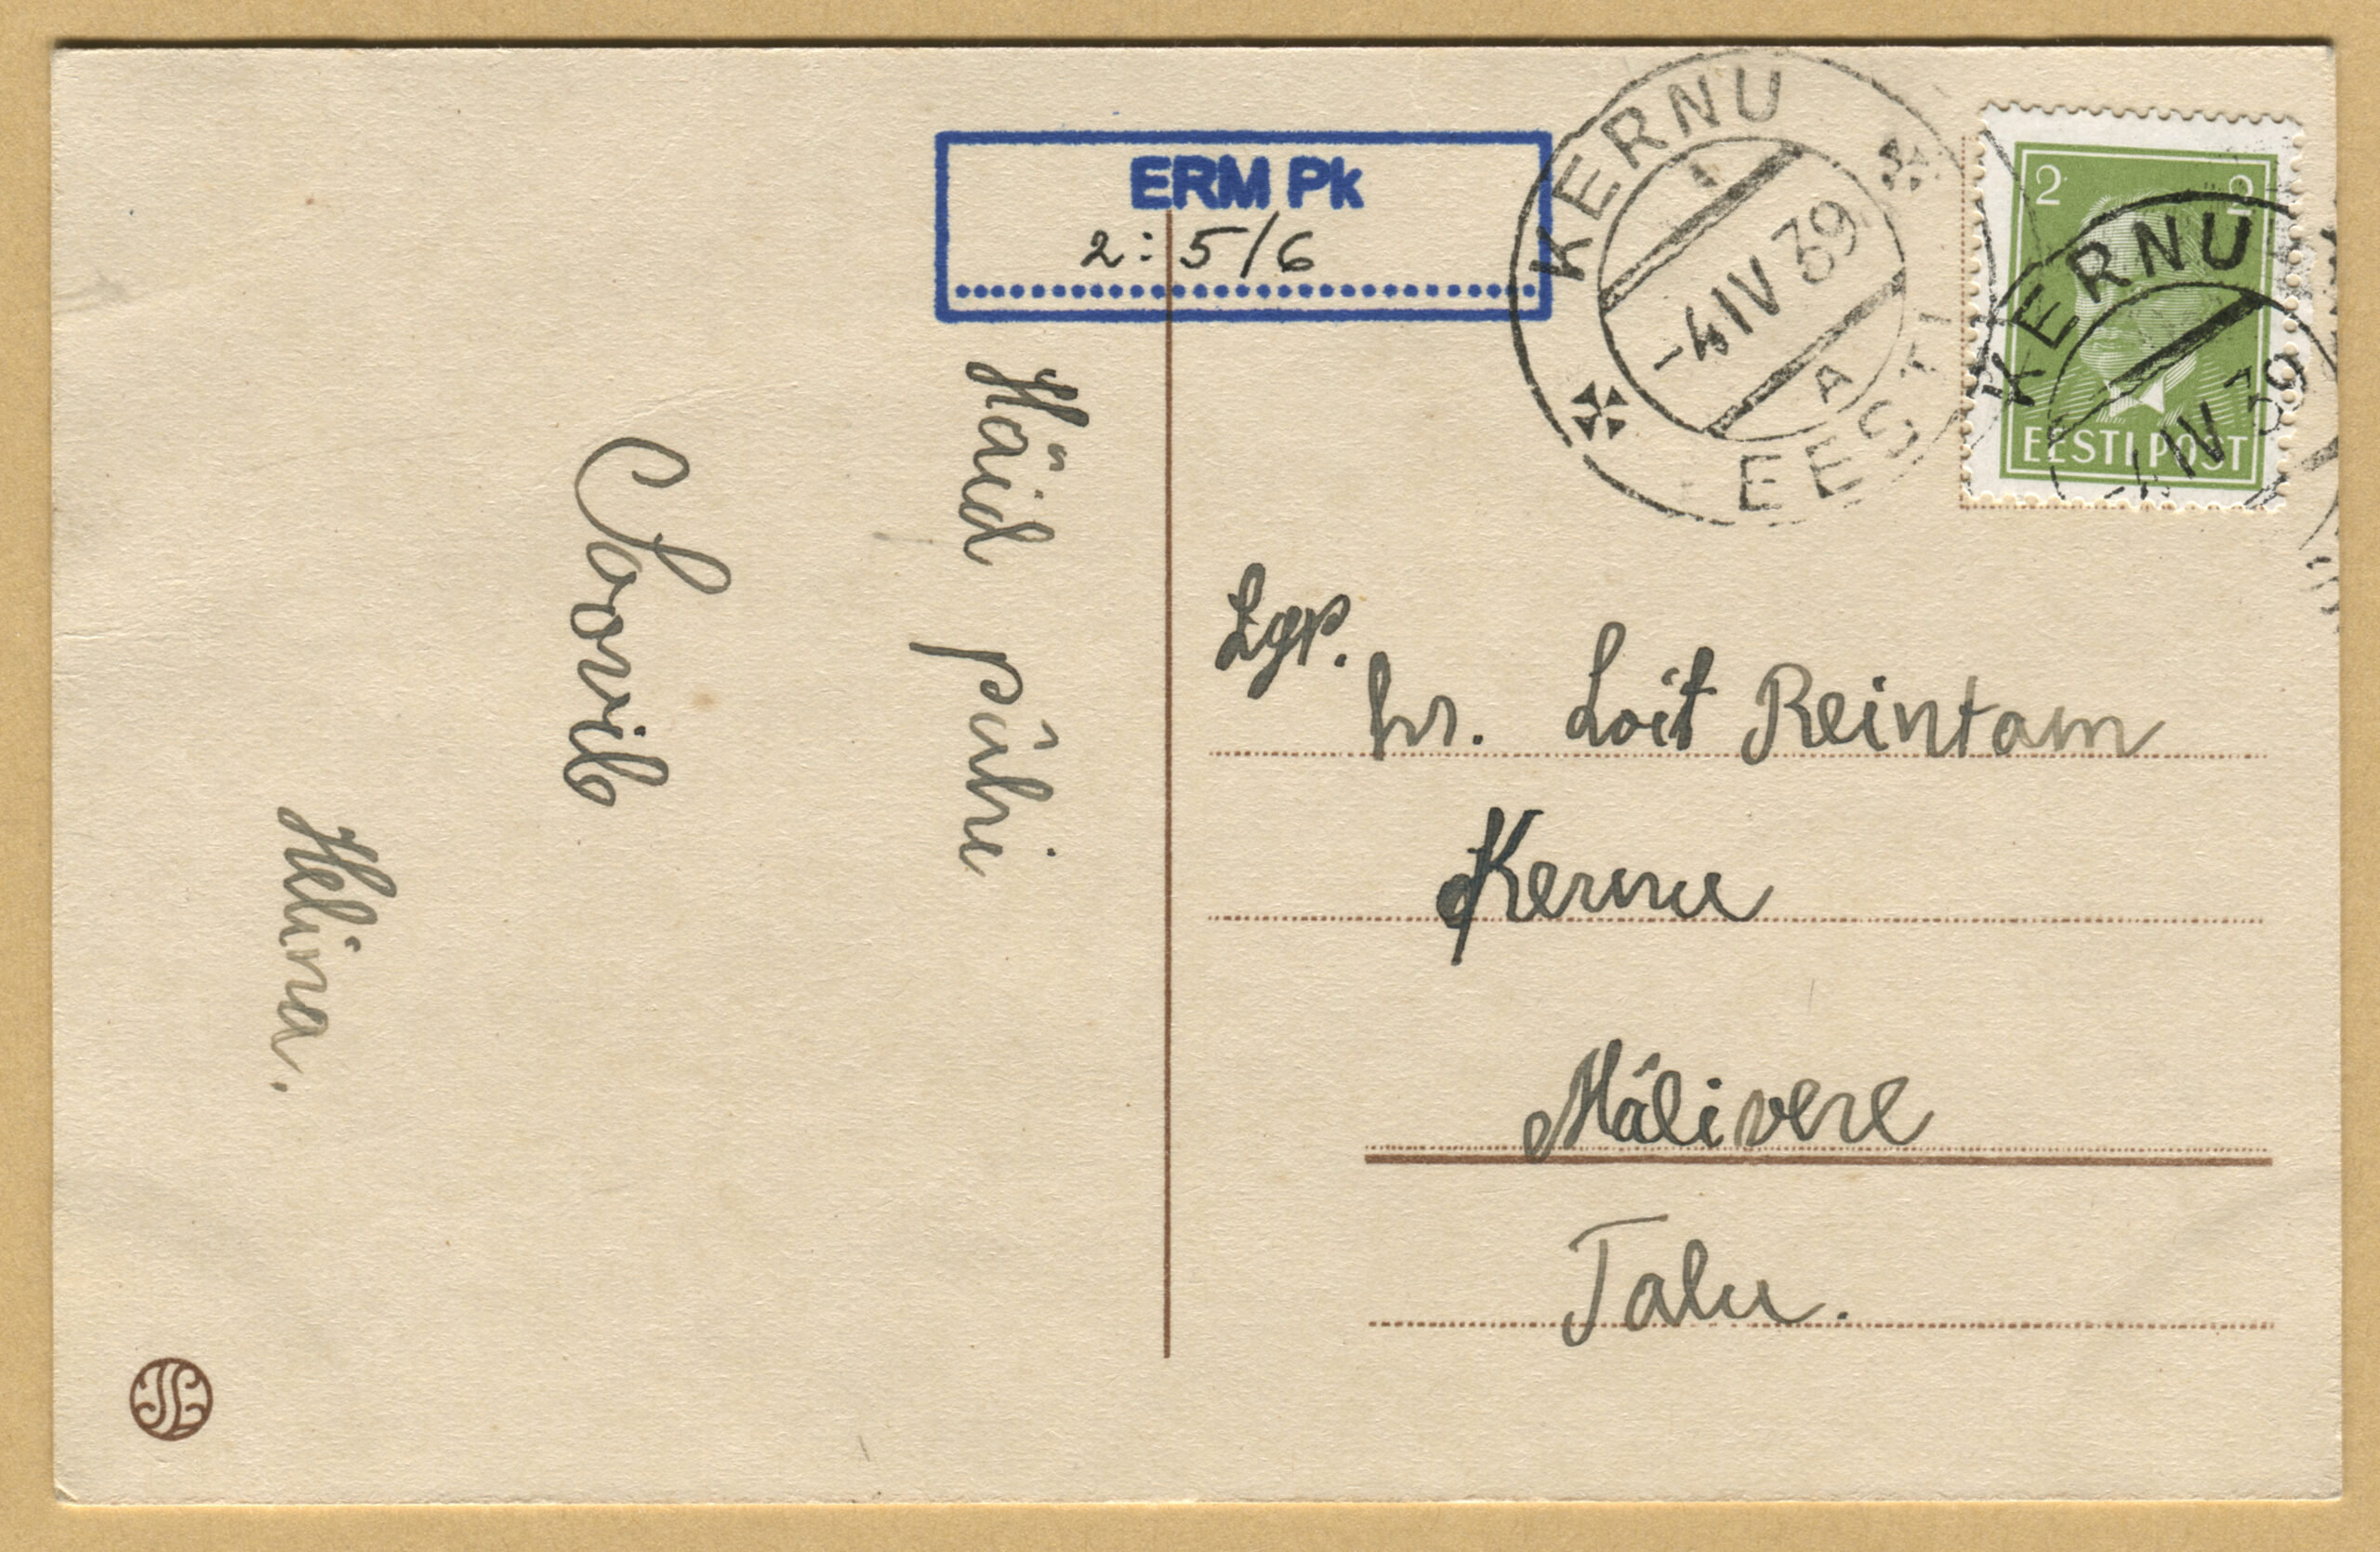 ERM Pk
2:5/6
KERNU
-4 IV 39
A
EESTI
2 2
EESTI POST
KERNU
-4 IV 39
Häid pühi
Soovib
Helina.
Lgp.
hr. Loit Reintam
Kernu
Mälivere
Talu.